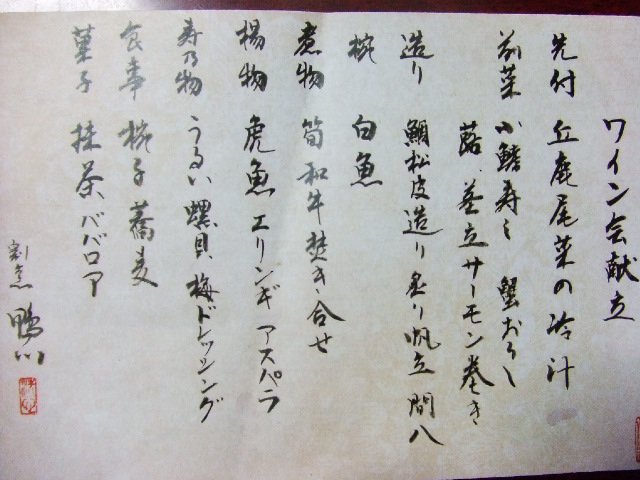 ワイン会献立
先付 丘鹿尾菜の冷汁
前菜 小鰭寿し 蟹おろし
蕗、茎立サーモン巻き
造り 鯛松皮造り 炙り帆立 間八
椀 白魚
煮物 筍和牛焚き合せ
揚物 虎魚 エリンギ アスパラ
寿乃物 うるい 螺貝 梅ドレッシング
食事 椀子蕎麦
菓子 抹茶ババロア
割烹 鴨川